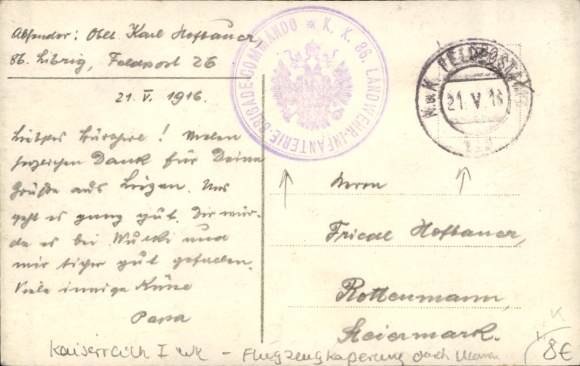 Absender: Oblt Karl Hofbauer,
86. Librig, Feldpost 26
21. V. 1916.
Liebstes Bürscherl! Vielen
herzlichen Dank für Deine
Grüße aus Liezen. Uns
geht es ganz gut. Dir wür-
de es bei Wucki und
mir sicher gut gefallen.
Viele innige Küsse
Papa
K. K. 86. LANDWEHR-INFANTERIE-BRIGADE-COMMANDO
K. u. K. FELDPOSTAMT
21. V. 16
Herrn
Friedl Hofbauer,
Rottenmann,
Steiermark.
Kaiserreich I WK - Flugzeugkaperung durch
8€